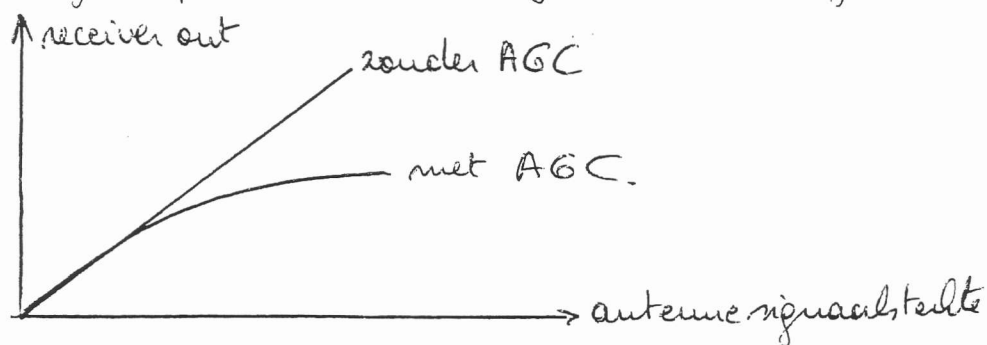 receiver out
zonder AGC
met AGC.
antenne signaalsterkte